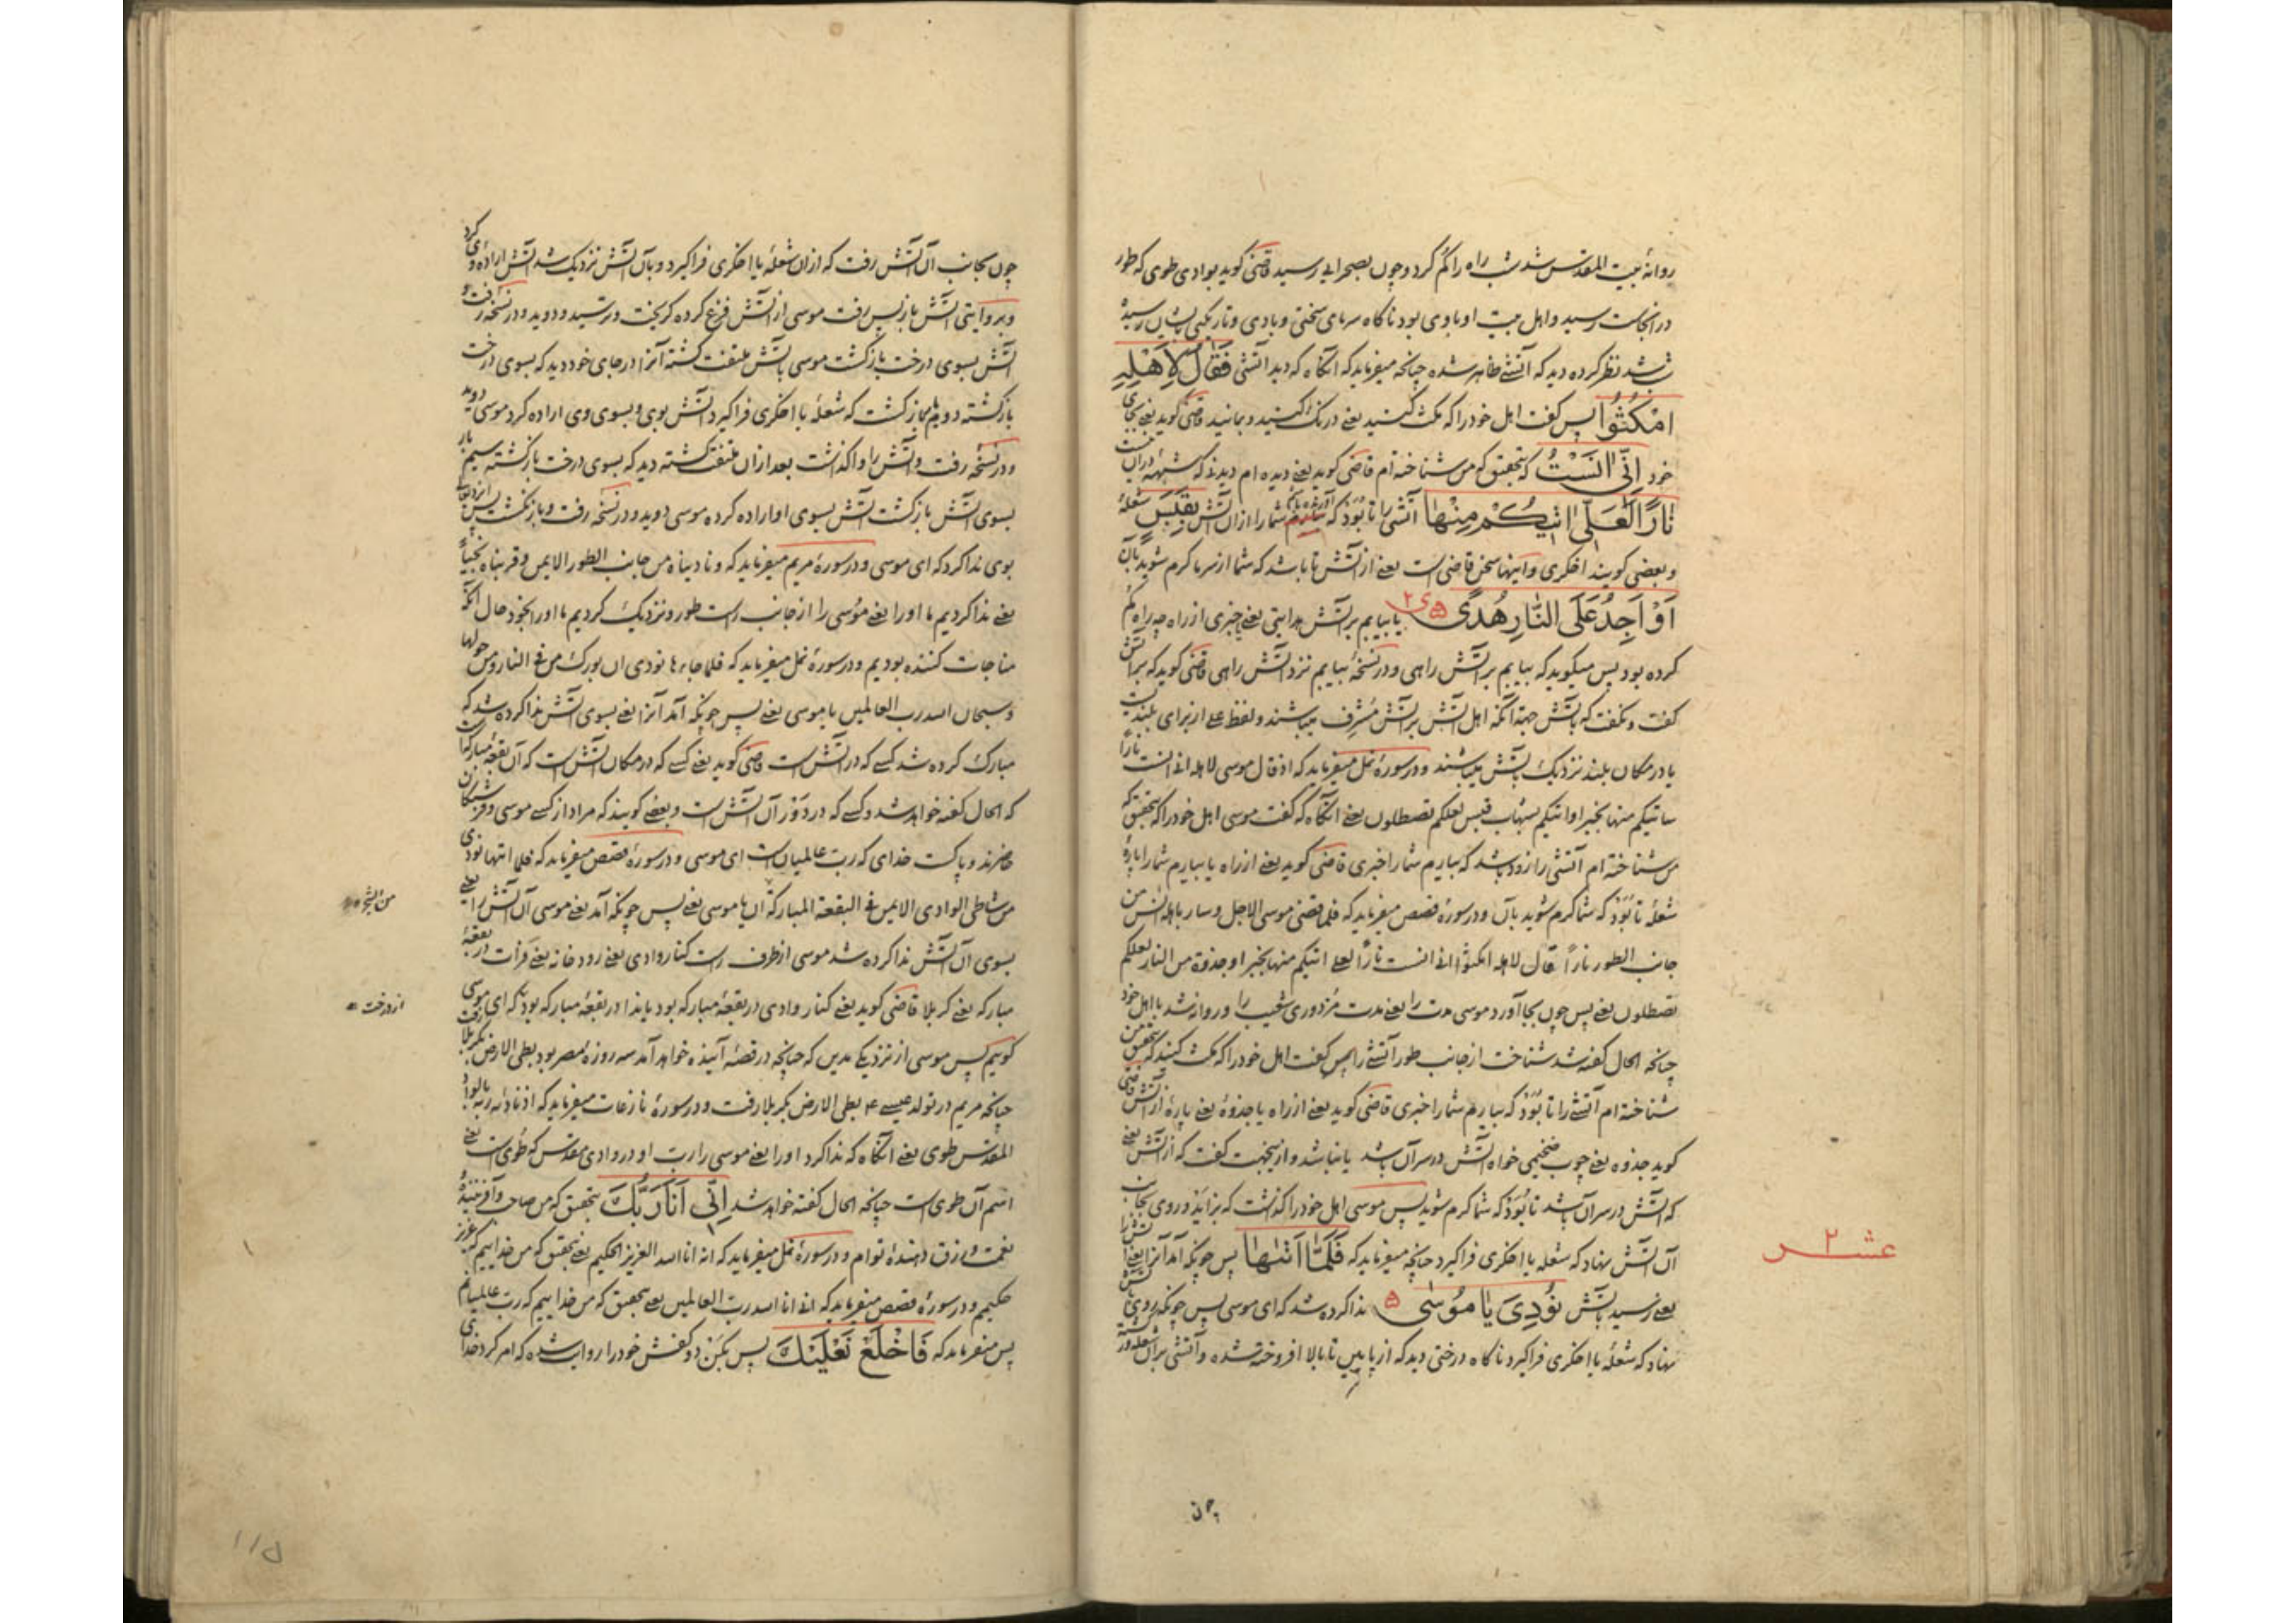 روانهٔ بیت المقدس شد شب راه را گم کرد و چون بصحرایی رسید قاضی گوید بوادی طوی که طور
در آنجاست رسید و اهل بیت او با وی بود ناگاه سرمای سختی و بادی و تاریکی بایشان رسیده
شب شد نظر کرده دید که آتشی ظاهر شده چنانچه میفرماید که آنگاه که دید آتشی فَقَالَ لِاَهْلِهِ
امْكُثُوا پس گفت اهل خود را که مکث کنید یعنی درنگ کنید و بمانید قاضی گوید یعنی بجای
خود اِنّی انَسْتُ که بتحقیق که من شناخته‌ام قاضی گوید یعنی دیده‌ام دیدنی که شبهه در آن نیست
نَارًا لَعَلّی اتیكُمْ مِنْها آتشی را تا بُوَد که شما را از آن آتش بِقَبَسٍ شعلهٔ
و بعضی گویند اخگری و اینها سخن قاضی است یعنی از آتش تا باشد که شما از سرما گرم شوید بآن
اَوْ اَجِدُ عَلَی النّارِ هُدًی یا بیابم بر آتش هدایتی یعنی خبری از راه چه راه گم
کرده بود پس میگوید که بیابم بر آتش راهی و در نسخهٔ بیابم نزد آتش راهی قاضی گوید که بر آتش
گفت و نگفت که بآتش جهة آنکه اهل آتش بر آتش مُشرِف میباشند و لفظ علی از برای بلندیست
یا در مکان بلند نزدیک بآتش میباشند و در سورهٔ نمل میفرماید که اذ قال موسی لاهله انی انست نارًا
ساتیکم منها بخبر او اتیکم بشهاب قبس لعلکم تصطلون یعنی آنگاه که گفت موسی اهل خود را که بتحقیق که
من شناخته‌ام آتشی را زود باشد که بیارم شما را خبری قاضی گوید یعنی از راه یا بیارم شما را پارهٔ
شعله تا بُوَد که شما گرم شوید بآن و در سورهٔ قصص میفرماید که فلما قضی موسی الاجل و سار باهله انس من
جانب الطور نارًا قال لاهله امکثوا انی انست نارًا لعلی اتیکم منها بخبر او جذوة من النار لعلکم
تصطلون یعنی پس چون بجا آورد موسی مدت را یعنی مدت مزدوری شعیب را و روانه شد با اهل خود
چنانچه الحال گفته شد شناخت از جانب طور آتشی را پس گفت اهل خود را که مکث کنید که بتحقیق من
شناخته‌ام آتشی را تا بُوَد که بیارم شما را خبری قاضی گوید یعنی از راه یا جذوهٔ یعنی پارهٔ از آتش قاضی
گوید جذوه یعنی چوب ضخیمی خواه آتش در سر آن باشد یا نباشد و ازینجهت گفت که از آتش یعنی
که آتش در سر آن باشد تا بُوَد که شما گرم شوید پس موسی اهل خود را گذاشت که بزاید و روی بجانب
آن آتش نهاد که شعله یا اخگری فراگیرد چنانچه میفرماید که فَلَمّا اَتیها پس چونکه آمد آنرا یعنی آتش را
یعنی رسید بآتش نُودِیَ یا مُوسی ندا کرده شد که ای موسی پس چونکه روی بآتش
نهاد که شعلهٔ یا اخگری فراگیرد ناگاه درختی دید که از پایین تا بالا افروخته شده و آتشی بر آن شعله‌ور گشته
عشر ۲
چون
چون بجانب آن آتش رفت که از آن شعلهٔ یا اخگری فراگیرد و بآن آتش نزدیک شد آتش ارادهٔ وی کرد
و بروایتی آتش باز پس رفت موسی از آتش فزع کرده گریخت و ترسید و دوید و در نسخه رفت و
آتش بسوی درخت بازگشت موسی بآتش ملتفت گشته آنرا در جای خود دید که بسوی درخت
بازگشته دویم بار بازگشت که شعلهٔ یا اخگری فراگیرد آتش بوی و بسوی وی اراده کرد موسی دوید
و در نسخه رفت و آتش را واگذاشت بعد از آن ملتفت گشته دید که بسوی درخت بازگشته سیم بار
بسوی آتش بازگشت آتش بسوی او اراده کرده موسی دوید و در نسخه رفت و بازنگشت پس ایزد تعالی
بوی ندا کرد که ای موسی و در سورهٔ مریم میفرماید که و نادیناه من جانب الطور الایمن و قربناه نجیاً
یعنی ندا کردیم ما او را یعنی موسی را از جانب راست طور و نزدیک گردیم ما او را بخود حال آنکه
مناجات کننده بودیم و در سورهٔ نمل میفرماید که فلما جاءها نودی ان بورک من فی النار و من حولها
و سبحان الله رب العالمین یا موسی یعنی پس چونکه آمد آنرا یعنی بسوی آتش ندا کرده شد که
مبارک کرده شد کسی که در آتش است قاضی گوید یعنی کسی که در مکان آتش است که آن بقعهٔ مبارکه است
که الحال گفته خواهد شد و کسی که در دَور آن آتش است و بعضی گویند که مراد از کسی موسی و فرشتگان
حاضرند و پاکست خدای که رب عالمیان است ای موسی و در سورهٔ قصص میفرماید که فلما اتیها نودی
من شاطئ الوادی الایمن فی البقعة المبارکة ان یا موسی یعنی پس چونکه آمد یعنی موسی آن آتش را یعنی
بسوی آن آتش ندا کرده شد موسی از طرف راست کنار وادی یعنی رودخانه یعنی فرات در بقعهٔ
مبارکه یعنی کربلا قاضی گوید یعنی کنار وادی در بقعهٔ مبارکه بود یا ندا در بقعهٔ مبارکه بود که ای موسی
گوییم پس موسی از نزدیک مدین که چنانچه در قصهٔ آینده خواهد آمد سه روزه مصر بود بطی الارض بکربلا رفت
چنانچه مریم در تولد عیسی ع بطی الارض بکربلا رفت و در سورهٔ نازعات میفرماید که اذ نادئه ربه بالواد
المقدس طوی یعنی آنگاه که ندا کرد او را یعنی موسی را رب او در وادی مقدس که طُوی است یعنی
اسم آن طوی است چنانچه الحال گفته خواهد شد اِنّی اَنَا رَبُّكَ بتحقیق که من صاحب و آفریننده
نعمت و رزق دهندهٔ توام و در سورهٔ نمل میفرماید که انه انا الله العزیز الحکیم یعنی بتحقیق که من خداییم که عزیز
حکیم و در سورهٔ قصص میفرماید که انی انا الله رب العالمین یعنی بتحقیق که من خداییم که رب عالمیانم
پس میفرماید که فَاخْلَعْ نَعْلَیْكَ پس بکَن دو کفش خود را روایت شده که امر کرد خدای
من الشجرة
از درخت